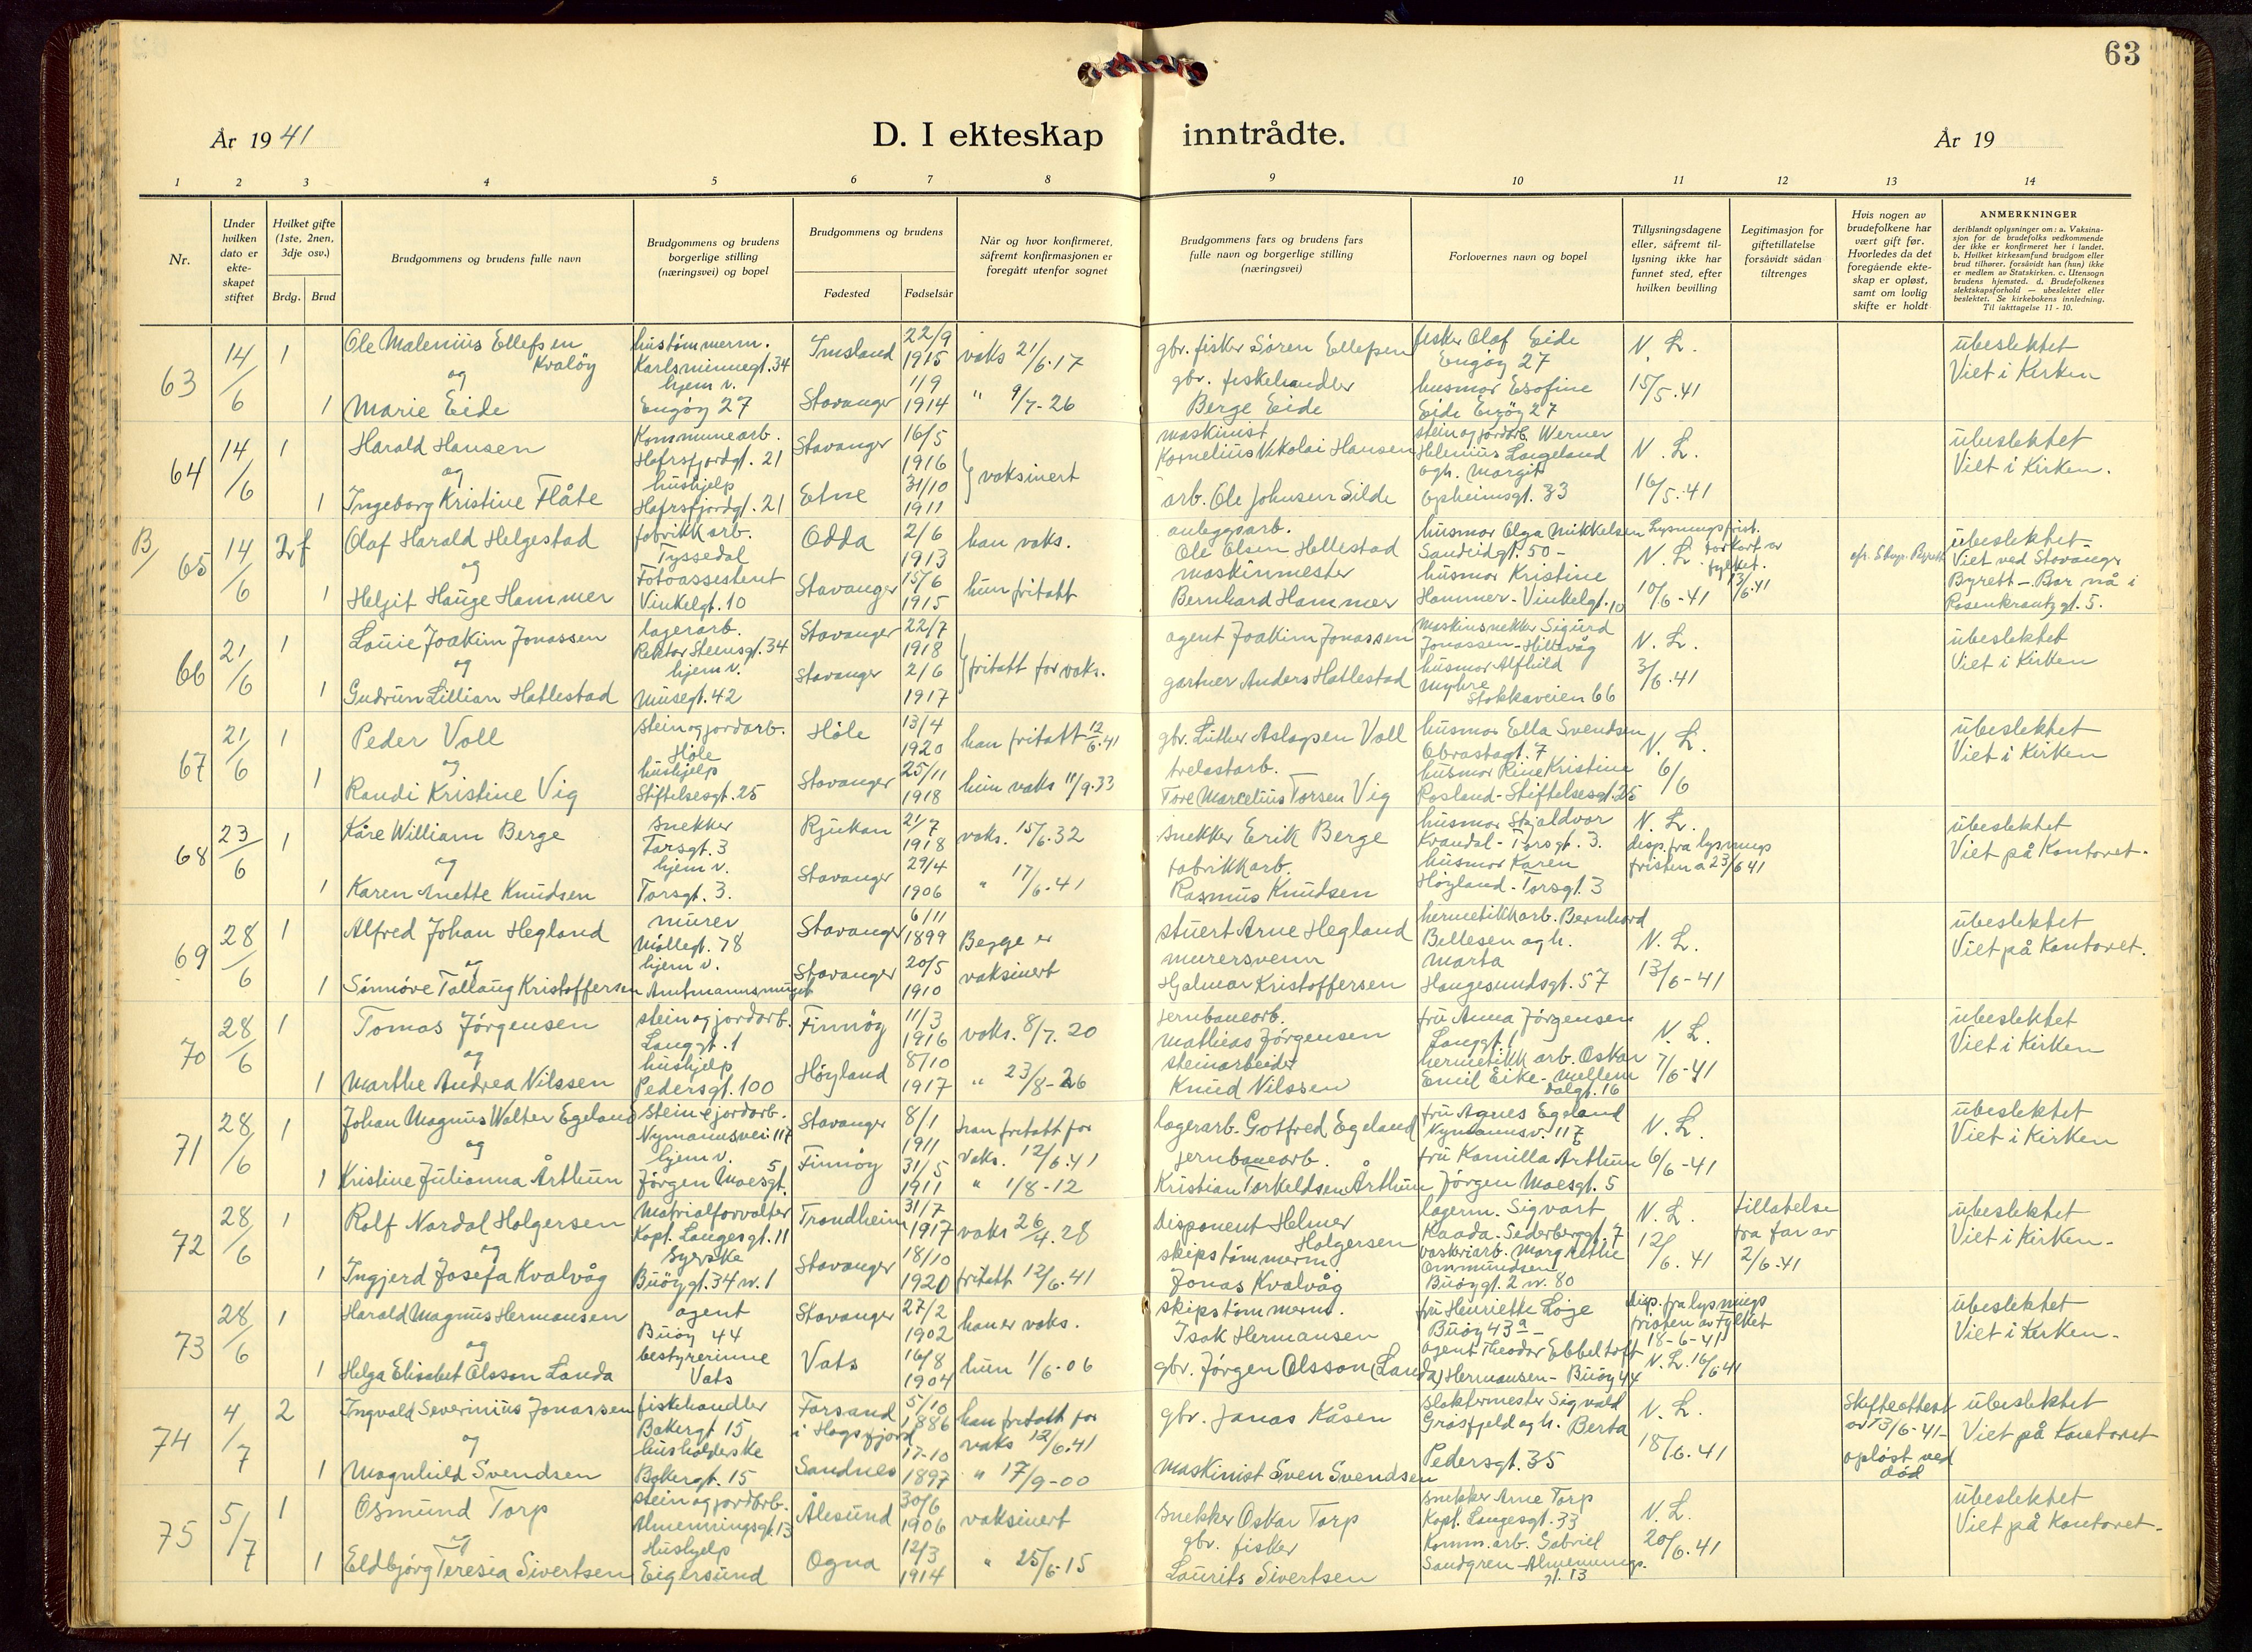 63
År 1941
D. I ekteskap inntrådte.
År 19
1 2 3 4 5 6 7 8 9 10 11 12 13 14
Nr.
Under hvilken dato er ekte-skapet stiftet
Hvilket gifte (1ste, 2nen, 3dje osv.)
Brdg. Brud
Brudgommens og brudens fulle navn
Brudgommens og brudens borgerlige stilling (næringsvei) og bopel
Brudgommens og brudens
Fødested Fødselsår
Når og hvor konfirmeret, såfremt konfirmasjonen er foregått utenfor sognet
Brudgommens fars og brudens fars fulle navn og borgerlige stilling (næringsvei)
Forlovernes navn og bopel
Tillysningsdagene eller, såfremt til-lysning ikke har funnet sted, efter hvilken bevilling
Legitimasjon for giftetillatelse forsåvidt sådan tiltrenges
Hvis nogen av brudefolkene har vært gift før. Hvorledes da det foregående ekte-skap er opløst, samt om lovlig skifte er holdt
ANMERKNINGER
deriblandt oplysninger om: a. Vaksina-sjon for de brudefolks vedkommende der ikke er konfirmeret her i landet. b. Hvilket kirkesamfund brudgom eller brud tilhører, forsåvidt han (hun) ikke er medlem av Statskirken. c. Utensogn brudens hjemsted. d. Brudefolkenes slektskapsforhold — ubeslektet eller beslektet. Se kirkebokens innledning. Til iakttagelse 11 - 10.
63 14/6 1 Ole Malenius Ellefsen Kvaløy hustømmerm. Karlsminnegt. 34 Imsland 22/9 1915 vaks 21/6.17 gbr. fisker Sören Ellefsen fisker Olaf Eide Engøy 27 N. L. ubeslektet
og
1 Marie Eide hjem v. Engøy 27 Stavanger 1/9 1914 " 9/7-26 gbr. fiskehandler Berge Eide husmor Esofine Eide Engøy 27 15/5.41 Viet i Kirken
64 14/6 1 Harald Hansen Kommunearb. Hafrsfjordgt. 21 Stavanger 16/5 1916 vaksinert maskinist Kornelius Nikolai Hansen stein og jordarb. Werner Helenius Langeland N. L. ubeslektet
og
1 Ingeborg Kristine Flåte hushjelp Hafrsfjordgt. 21 Etne 31/10 1911 arb. Ole Johnsen Silde og h. Margit Opheimsgt. 33 16/5.41 Viet i Kirken.
B/ 65 14/6 2 f Olaf Harald Helgestad fabrikkarb. Tyssedal Odda 2/6 1913 han vaks. anleggsarb. Ole Olsen Hollestad husmor Olga Mikkelsen Sandeidgt. 50 - N. L. Lysningsfrist. forkort av fylket. 13/6.41 ubeslektet
og
1 Heljit Hauge Hammer Fotoassistent Vinkelgt. 10 Stavanger 15/6 1915 hun fritatt maskinmester Bernhard Hammer husmor Kristine Hammer - Vinkelgt. 10 10/6-41 Viet ved Stavanger Byrett - Bor nå i Rosenkrantzgt. 5.
66 21/6 1 Louie Joakim Jonassen lagerarb. Rektor Steensgt. 34 Stavanger 22/7 1918 fritatt for vaks. agent Joakim Jonassen Maskinsnekker Sigurd Jonassen - Hillevåg N. L. ubeslektet
og
1 Gudrun Lillian Hatlestad hjem v. Musegt. 42 Stavanger 2/6 1917 gartner Anders Hatlestad husmor Alfhild Myhre Stokkaveien 66 3/6.41 Viet i Kirken
67 21/6 1 Peder Voll stein og jordarb. Høle Høle 13/4 1920 han fritatt 12/6.41 gbr. Luther Aslagsen Voll husmor Ella Svendsen Obrastagt. 7 N. L. ubeslektet
og
1 Randi Kristine Vig hushjelp Stiftelsesgt. 25 Stavanger 25/11 1918 hun vaks 11/9.33 trelastarb. Tore Marcelius Torsen Vig husmor Rine Kristine Rosland - Stiftelsesgt. 25 6/6 Viet i Kirken
68 23/6 1 Kåre William Berge snekker Torsgt. 3 Rjukan 21/7 1918 vaks. 15/6.32 snekker Erik Berge husmor Skjaldvor Kvandal - Torsgt. 3. N. L. disp. fra lysnings fristen a 23/6 41 ubeslektet
og
1 Karen Anette Knudsen hjem v. Torsgt. 3. Stavanger 29/4 1906 " 17/6.41 fabrikkarb. Rasmus Knudsen husmor Karen Høyland - Torsgt. 3 Viet på Kontoret.
69 28/6 1 Alfred Johan Hegland murer Møllegt. 78 Stavanger 6/11 1899 Begge er vaksinert stuert Arne Hegland hermetikkarb. Bernhard Bellesen og h. N. L. ubeslektet
og
1 Sinnøve Tallaug Kristoffersen hjem v. Stavanger 20/5 1910 murersvenn Hjalmar Kristoffersen Marta Haugesundsgt. 57 13/6-41 Viet på Kontoret.
70 28/6 1 Tomas Jörgensen stein og jordarb. Langgt. 1 Finnøy 11/3 1916 vaks. 8/7.20 jernbanearb. Mathias Jörgensen fru Anna Jörgensen Langgt. 1 N. L. ubeslektet
og
1 Marthe Andrea Nilssen hushjelp Pedersgt. 100 Høyland 8/10 1917 " 23/8-26 steinarbeider Knud Nilssen hermetikk arb. Oskar Emil Eike - Mellem dalgt. 16 7/6-41 Viet i Kirken
71 28/6 1 Johan Magnus Walter Egeland stein & jordarb. Nymannsvei 117 Stavanger 8/1 1911 han fritatt for vaks. 12/6.41 lagerarb. Gotfred Egeland fru Agnes Egeland Nymannsv. 117 N. L. ubeslektet
og
1 Kristine Julianna Årthun hjem v. Jörgen Moesgt. 5 Finnøy 31/5 1911 " 1/8-12 jernbanearb. Kristian Torkeldsen Årthun fru Kamilla Årthun Jörgen Moesgt. 5 6/6-41 Viet i Kirken
72 28/6 1 Rolf Nordal Holgersen Matrialforvalter Kapt. Langesgt. 11 Trondheim 31/7 1917 vaks 26/4.28 Disponent Helmer Holgersen lagerm. Sigvart Kaada - Sederberggt. 7 N. L. tillatelse fra far av 2/6.41 ubeslektet
og
1 Ingjerd Josefa Kvalvåg syerske Buøygt. 34 w. 1 Stavanger 18/10 1920 fritatt 12/6.41 skipstømmerm. Jonas Kvalvåg vaskeriarb. Margrethe Ommundsen Buøygt. 2 w. 80 12/6.41 Viet i Kirken.
73 28/6 1 Harald Magnus Hermansen agent Buøy 44 Stavanger 27/2 1902 han er vaks. skipstømmerm. Isak Hermansen fru Henriette Løge Buøy 43 a - disp. fra lysnings fristen av Fylket 18-6-41 ubeslektet
og
1 Helga Elisabet Olsson Landa bestyrerinne Vats Vats 16/8 1904 hun 1/6-06 gbr. Jörgen Olsson (Landa) agent Theodor Ebbeltoft Hermansen - Buøy 44 N. L. 16/6 41 Viet i Kirken.
74 4/7 2 Ingvald Severinius Jonassen fiskehandler Bakergt 15 Forsand i Høgsfjord 5/10 1886 han fritatt for vaks 12/6.41 gbr. Jonas Kåsen slaktermester Sigvald Gråsfjeld og h. Berta N. L. Skifteattest av 13/6-41 - ubeslektet
og
1 Magnhild Svendsen husholderske Bakergt. 15 Sandnes 17-10 1897 " 17/9-00 maskinist Sven Svendsen Pedersgt. 35 18/6.41 opløst ved død Viet på Kontoret
75 5/7 1 Osmund Torp stein og jordarb. Almenningsgt. 13 Ålesund 30/6 1906 vaksinert snekker Oskar Torp snekker Arne Torp Kapt. Langesgt. 33 N. L. ubeslektet
og
1 Eldbjörg Teresia Sivertsen Hushjelp Eigersund Ogna 12/3 1914 " 25/6-15 gbr. fisker Laurits Sivertsen Komm. arb. Gabriel Sandgren - Almennings gt. 13 20/6.41 Viet på Kontoret.